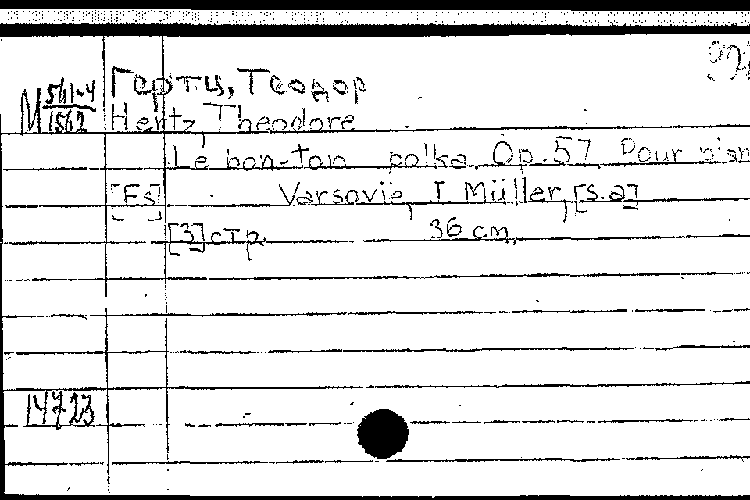 М 561-4/1562 Гертц, Теодор
Hertz, Theodore
Le bon-ton polka. Op. 57. Pour
[Es] Varsovie, I Müller, [s.a]
[3] стр. 36 см.
14723